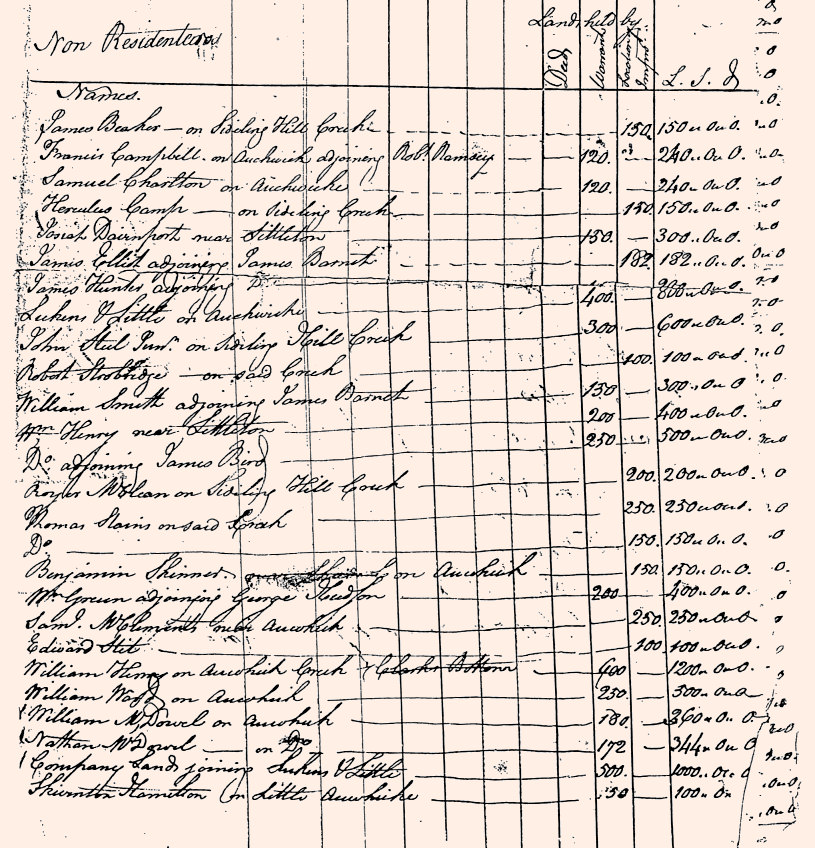 Non Residenters
Lands held by
Deed Warrant Location Impr.t L. S. d
Names.
James Beaker — on Sideling Hill Creek 150. 150 .. 0 .. 0.
Francis Campbell. on Auchwick adjoining Rob.t Ramsey 120. 240 .. 0 .. 0.
Samuel Charlton on Auchwicke 120. 240 .. 0 .. 0.
Hercules Camp — on Sideling Creek 150. 150 .. 0 .. 0.
Josiah Davenport near Littleton 150. 300 .. 0 .. 0.
James Elliot adjoining James Barnet 182. 182 .. 0 .. 0.
James Hunter adjoining D.o 400. 800 .. 0 .. 0.
Lukens & Little on Auchwicke 300. 600 .. 0 .. 0.
John Steel Jun.r on Sideling Hill Creek 100. 100 .. 0 .. 0.
Robert — on said Creek 150. 300 .. 0 .. 0
William Smith adjoining James Barnet 200 400 .. 0 .. 0.
Wm Henry near Littleton 250 500 .. 0 .. 0.
D.o adjoining James Bird 200. 200 .. 0 .. 0.
Royer McClean on Sideling Hill Creek 250. 250 .. 0 .. 0.
Thomas Stains on said Creek 150. 150 .. 0 .. 0.
D.o 150. 150 .. 0 .. 0.
Benjamin Skinner on Aucwhick 200 400 .. 0 .. 0.
Wm Green adjoining George Hudson 250 250 .. 0 .. 0
Sam.l McClements near Aucwhick 100. 100 .. 0 .. 0.
Edward Stit
William Henry on Aucwhick Creek & Clarks Bottom 600 1200 .. 0 .. 0.
William Ward on Aucwhick 250. 500 .. 0 .. 0
William McDowel on Aucwhick 180. 360 .. 0 .. 0
Nathan McDowel — on D.o 172 344 .. 0 .. 0
Company Lands joining Lukens & Little 500. 1000 .. 0 .. 0
Hamelton on Little Aucwhicke 50 100 .. 0 ..